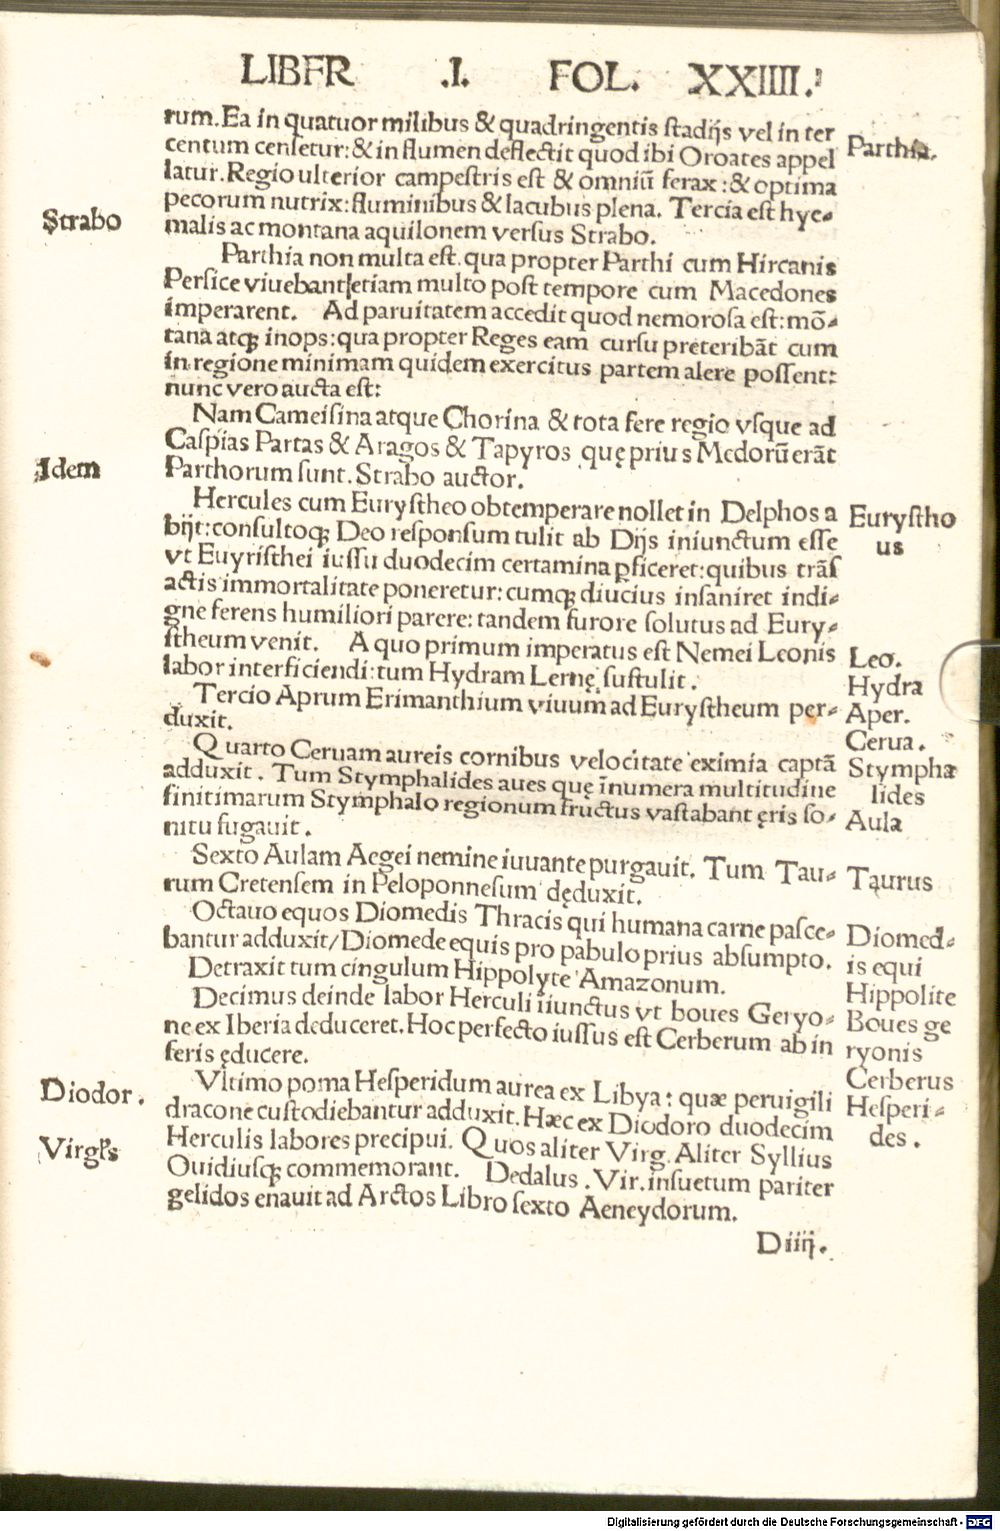 LIBER .I. FOL. XXIIII.
rum. Ea in quatuor milibus & quadringentis stadijs vel in ter
centum censetur: & in flumen deflectit quod ibi Oroates appel
latur. Regio ulterior campestris est & omniũ ferax: & optima
pecorum nutrix: fluminibus & lacubus plena. Tercia est hye-
malis ac montana aquilonem versus Strabo.
Parthia.
Strabo
Parthia non multa est. qua propter Parthi cum Hircanis
Persice viuebant etiam multo post tempore cum Macedones
imperarent. Ad paruitatem accedit quod nemorosa est: mõ-
tana atqꝫ inops: qua propter Reges eam cursu preteribãt cum
in regione minimam quidem exercitus partem alere possent:
nunc vero aucta est:
Nam Cameisina atque Chorina & tota fere regio vsque ad
Caspias Partas & Aragos & Tapyros quę prius Medorũ erãt
Parthorum sunt. Strabo auctor.
Idem
Hercules cum Eurystheo obtemperare nollet in Delphos a
bijt: consultoqꝫ Deo responsum tulit ab Dijs iniunctum esse
vt Euyristhei iussu duodecim certamina ꝑficeret: quibus trãs
actis immortalitate poneretur: cumqꝫ diucius insaniret indi-
gne ferens humiliori parere: tandem furore solutus ad Eury-
stheum venit. A quo primum imperatus est Nemei Leonis
labor interficiendi: tum Hydram Lernę sustulit.
Eurystho
us
Leo.
Hydra
Tercio Aprum Erimanthium viuum ad Eurystheum per-
duxit.
Aper.
Quarto Ceruam aureis cornibus velocitate eximia captã
adduxit. Tum Stymphalides aues quę ĩnumera multitudine
finitimarum Stymphalo regionum fructus vastabant ęris so-
nitu fugauit.
Cerua.
Stympha
lides
Aula
Sexto Aulam Aegei nemine iuuante purgauit. Tum Tau-
rum Cretensem in Peloponnesum dęduxit.
Taurus
Octauo equos Diomedis Thracis qui humana carne pasce-
bantur adduxit/ Diomede equis pro pabulo prius absumpto.
Detraxit tum cingulum Hippolyte Amazonum.
Diomed-
is equi
Hippolite
Decimus deinde labor Herculi iiunctus vt boues Geryo-
ne ex Iberia deduceret. Hoc perfecto iussus est Cerberum ab in
feris ęducere.
Boues ge
ryonis
Cerberus
Vltimo poma Hesperidum aurea ex Libya: quæ peruigili
dracone custodiebantur adduxit. Hæc ex Diodoro duodecim
Herculis labores precipui. Quos aliter Virg. Aliter Syllius
Ouidiusqꝫ commemorant. Dedalus. Vir. insuetum pariter
gelidos enauit ad Arctos Libro sexto Aeneydorum.
Hesperi-
des.
Diodor.
Diiij.
Digitalisierung gefördert durch die Deutsche Forschungsgemeinschaft - DFG